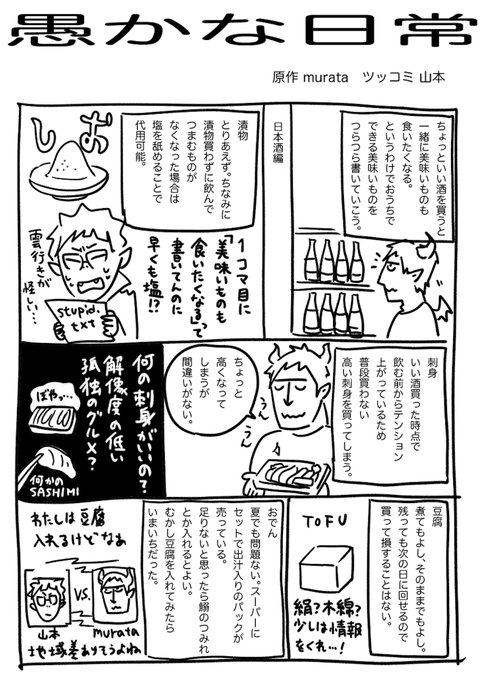 愚かな日常
原作 murata　ツッコミ 山本
ちょっといい酒を買うと
一緒に美味いものも
食いたくなる。
というわけでおうちで
できる美味いものを
つらつら書いていこう。
日本酒編
漬物
とりあえず。ちなみに
漬物買わずに飲んで
つまむものが
なくなった場合は
塩を舐めることで
代用可能。
おしお
1コマ目に
「美味いものも
食いたくなる」って
書いてんのに
早くも塩!?
stupid.
txt
雲行きが
怪しい…
刺身
いい酒買った時点で
飲む前からテンション
上がっているため
普段買わない
高い刺身を買ってしまう。
ちょっと
高くなって
しまうが
間違いがない。
うん
うん
何の刺身がいいの?
解像度の低い
孤独のグルメ?
ぼやっ…
何かの
SASHIMI
豆腐
煮てもよし、そのままでもよし。
残っても次の日に回せるので
買って損することはない。
TOFU
絹?木綿?
少しは情報
をくれ…!
おでん
夏でも問題ない。スーパーに
セットで出汁入りのパックが
売っている。
足りないと思ったら鰯のつみれ
とか入れるとよい。
むかし豆腐を入れてみたら
いまいちだった。
わたしは豆腐
入れるけどなあ
VS.
山本
murata
地域差ありそうよね